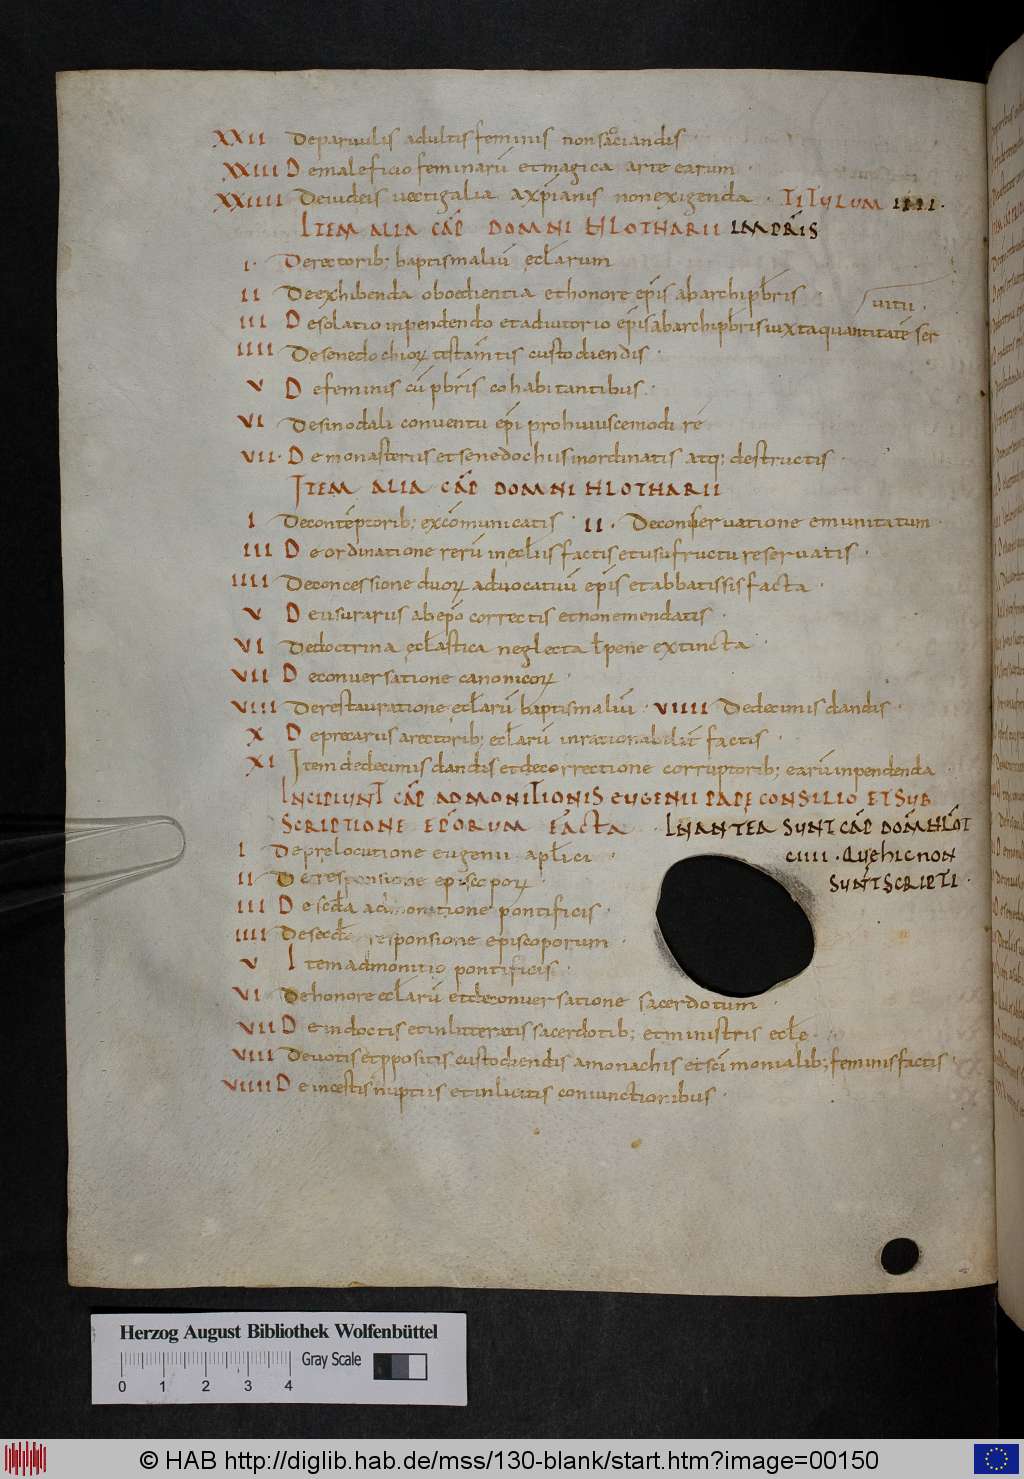 XXII Deparuulis adultis feminis nonsaciandis ·
XXIII Demaleficio feminarū et magica arte earum ·
XXIIII Deiudeis uectigalia axp̄ianis nonexigenda · TITULUM IIII ·
ITEM ALIA CAP̄ DOMNI HLOTHARII IMPR̄IS
I · Derectorib; baptismaliū ęcl̄arum
II Deexhibenda oboedientia ethonore ep̄is abarchipb̄ris ·
uitii ·
III Desolatio inpendendo etadiutorio ep̄is abarchipb̄ris iuxtaquantitatē ser
IIII Desenedochiorꝝ testāmtis custodiendis ·
V Defeminis cū pb̄ris cohabitantibus ·
VI Desinodali conuentu ep̄i prohuiuscemodi rē
VII · Demonasteriis etsenedochiis inordinatis atq; destructis ·
ITEM ALIA CAP̄ DOMNI HLOTHARII
I Decontēptorib; excōmunicatis · II · Deconseruatione emunitatum ·
III Deordinatione rerū inecl̄iis factis etusufructu reseruatis ·
IIII Deconcessione duorꝝ aduocatuū ep̄is etabbatissis facta ·
V Deusurariis abep̄o correctis etnonemendatis ·
VI Dedoctrina ęcl̄astica neglecta l̄pene extincta ·
VII Deconuersatione canonicorꝝ ·
VIII Derestauratione ęcl̄arū baptismaliū · VIIII Dedecimis dandis ·
X Deprecariis arectorib; ecl̄arū inrationabilit̄ factis ·
XI Item dedecimis dandis etdecorrectione corruptorib; earū inpendenda ·
INCIPIUNT CAP̄ ADMONITIONIS EUGENII PAPE CONSILIO ET SUB
SCRIPTIONE EP̄ORUM FACTA INANTEA SUNT CAP̄ DOM̄ HLOT
I Deprelocutione eugenii apl̄ici · CIIII · QUE HIC NON
II Deresponsione episcoporꝝ · SUNT SCRIPTI ·
III Desc̄da admonitione pontificis ·
IIII Desec̄da responsione episcoporum ·
V Item admonitio pontificis ·
VI Dehonore ecl̄arū etdeconuersatione sacerdotum ·
VII Deindoctis etinlitteratis sacerdotib; etministris ecl̄e ·
VIII Deuotis etp̄positis custodiendis amonachis etsc̄imonialib; feminis factis ·
VIIII Deincestis nuptiis etinlicitis coniunctioribus ·
Herzog August Bibliothek Wolfenbüttel
Gray Scale
0 1 2 3 4
© HAB http://diglib.hab.de/mss/130-blank/start.htm?image=00150